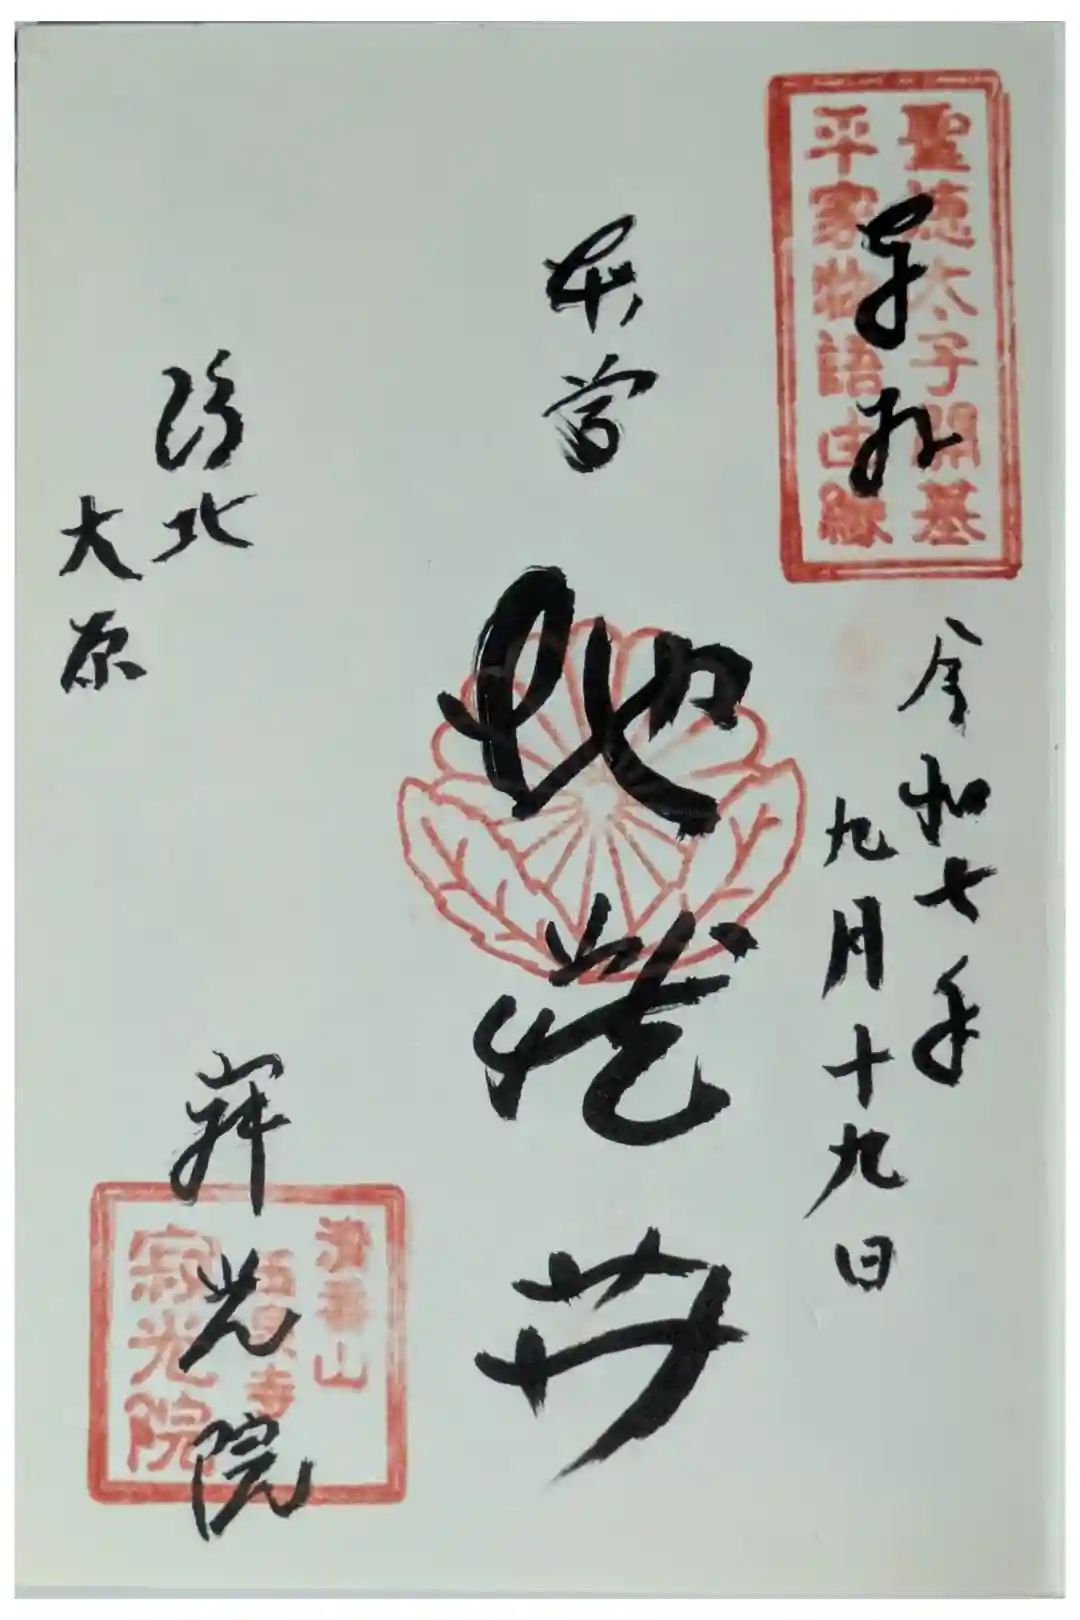 聖徳太子開基
平家物語由縁
奉拝
令和七年
九月十九日
本
地蔵𦬇
洛北
大原
寂光院
清香山
玉泉寺
寂光院